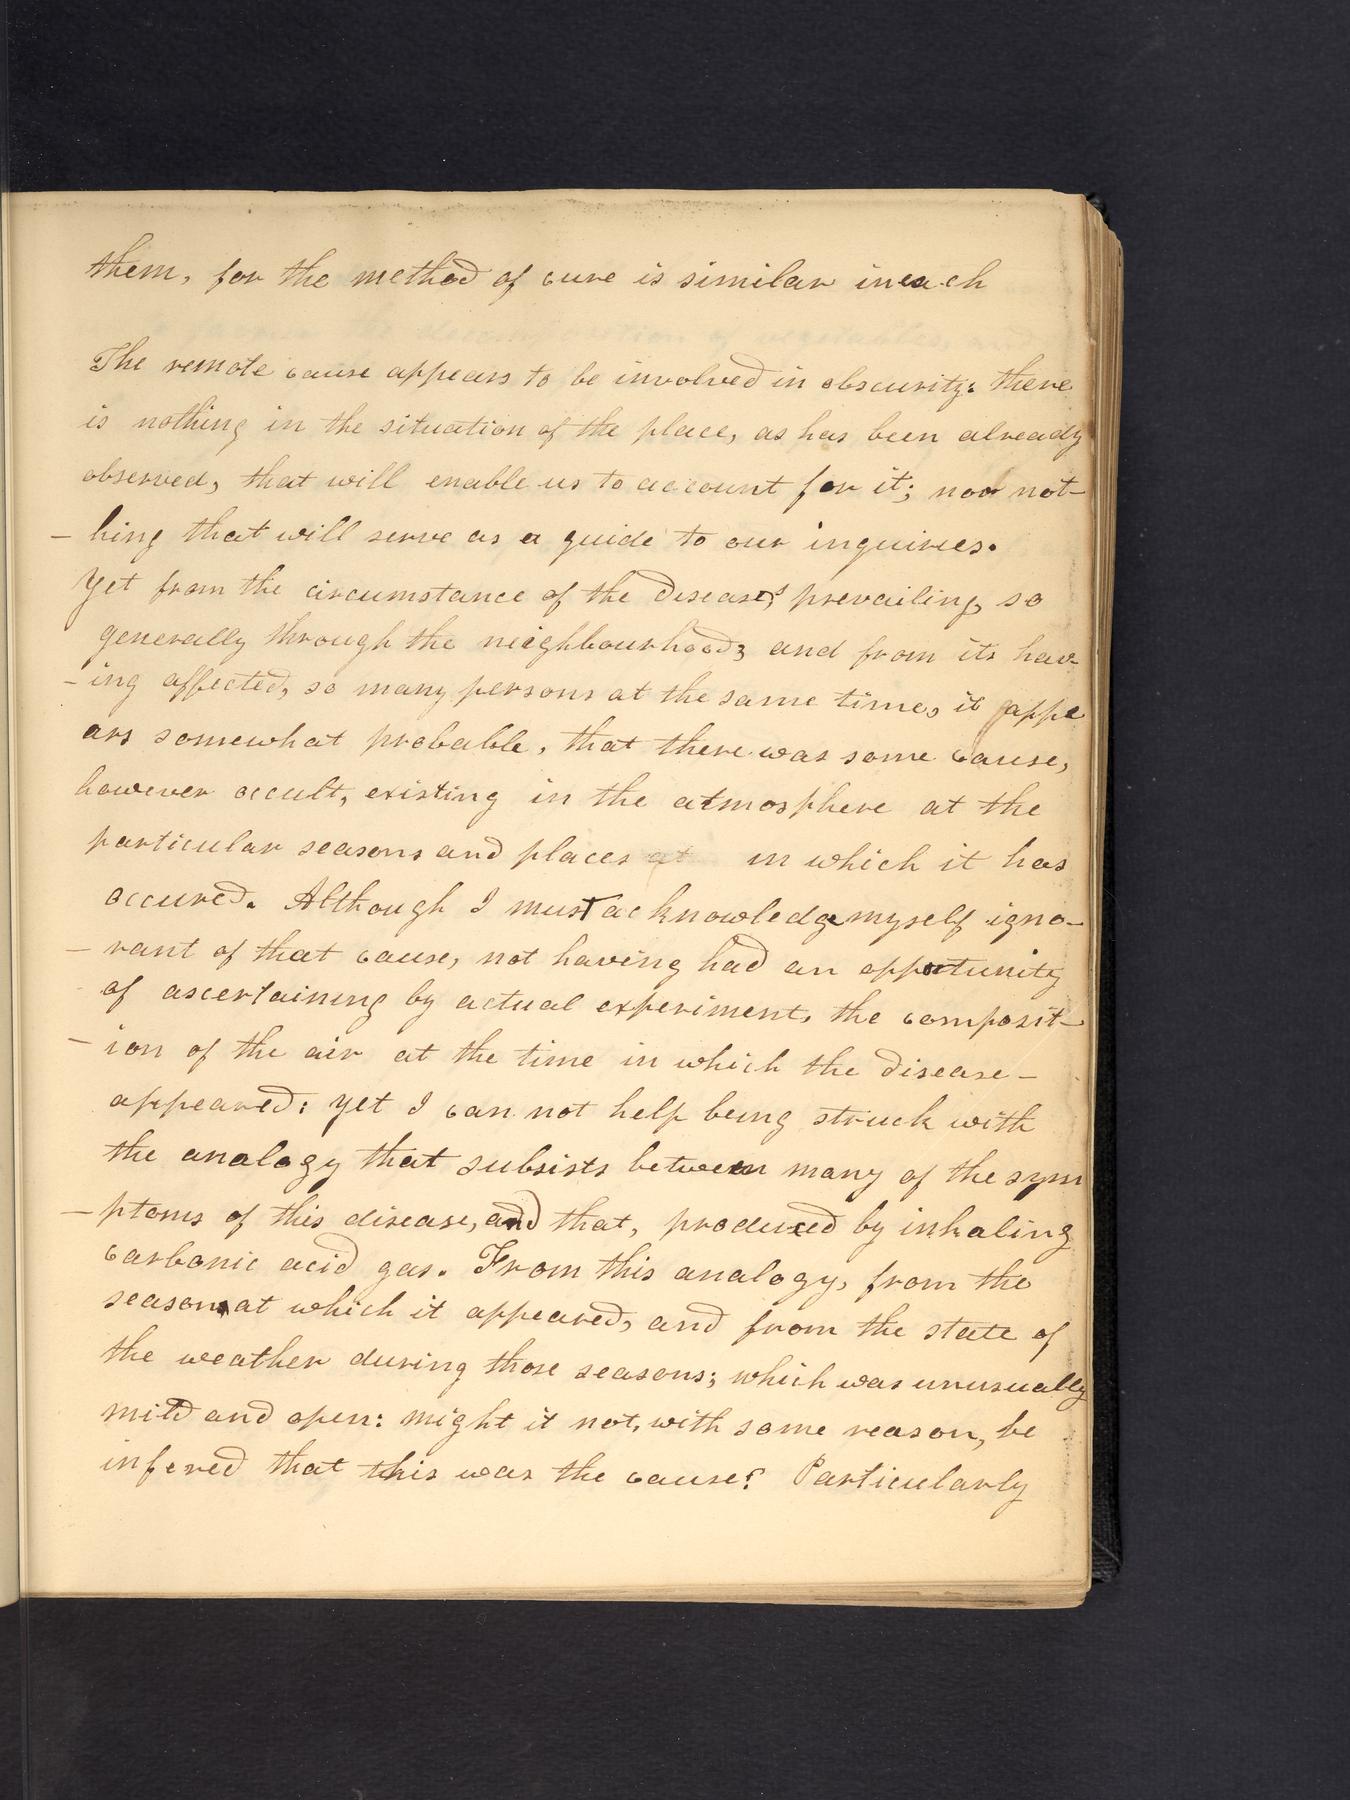 them, for the method of cure is similar in each
The remote cause appears to be involved in obscurity: there
is nothing in the situation of the place, as has been already
observed, that will enable us to account for it; nor not-
- hing that will serve as a guide to our inquiries.
Yet from the circumstance of the disease's prevailing so
generally through the neighbourhood; and from its hav-
- ing affected, so many persons at the same time, it appe
ars somewhat probable, that there was some cause,
however occult, existing in the atmosphere at the
particular seasons and places at in which it has
occured. Although I must acknowledge myself igno-
- rant of that cause, not having had an opportunity
of ascertaining by actual experiment, the composit-
- ion of the air at the time in which the disease -
appeared: yet I can not help being struck with
the analogy that subsists between many of the sym
- ptoms of this disease, and that, produced by inhaling
carbonic acid gas. From this analogy, from the
seasons at which it appeared, and from the state of
the weather during those seasons; which was unusually
mild and open: might it not, with some reason, be
infered that this was the cause? Particularly